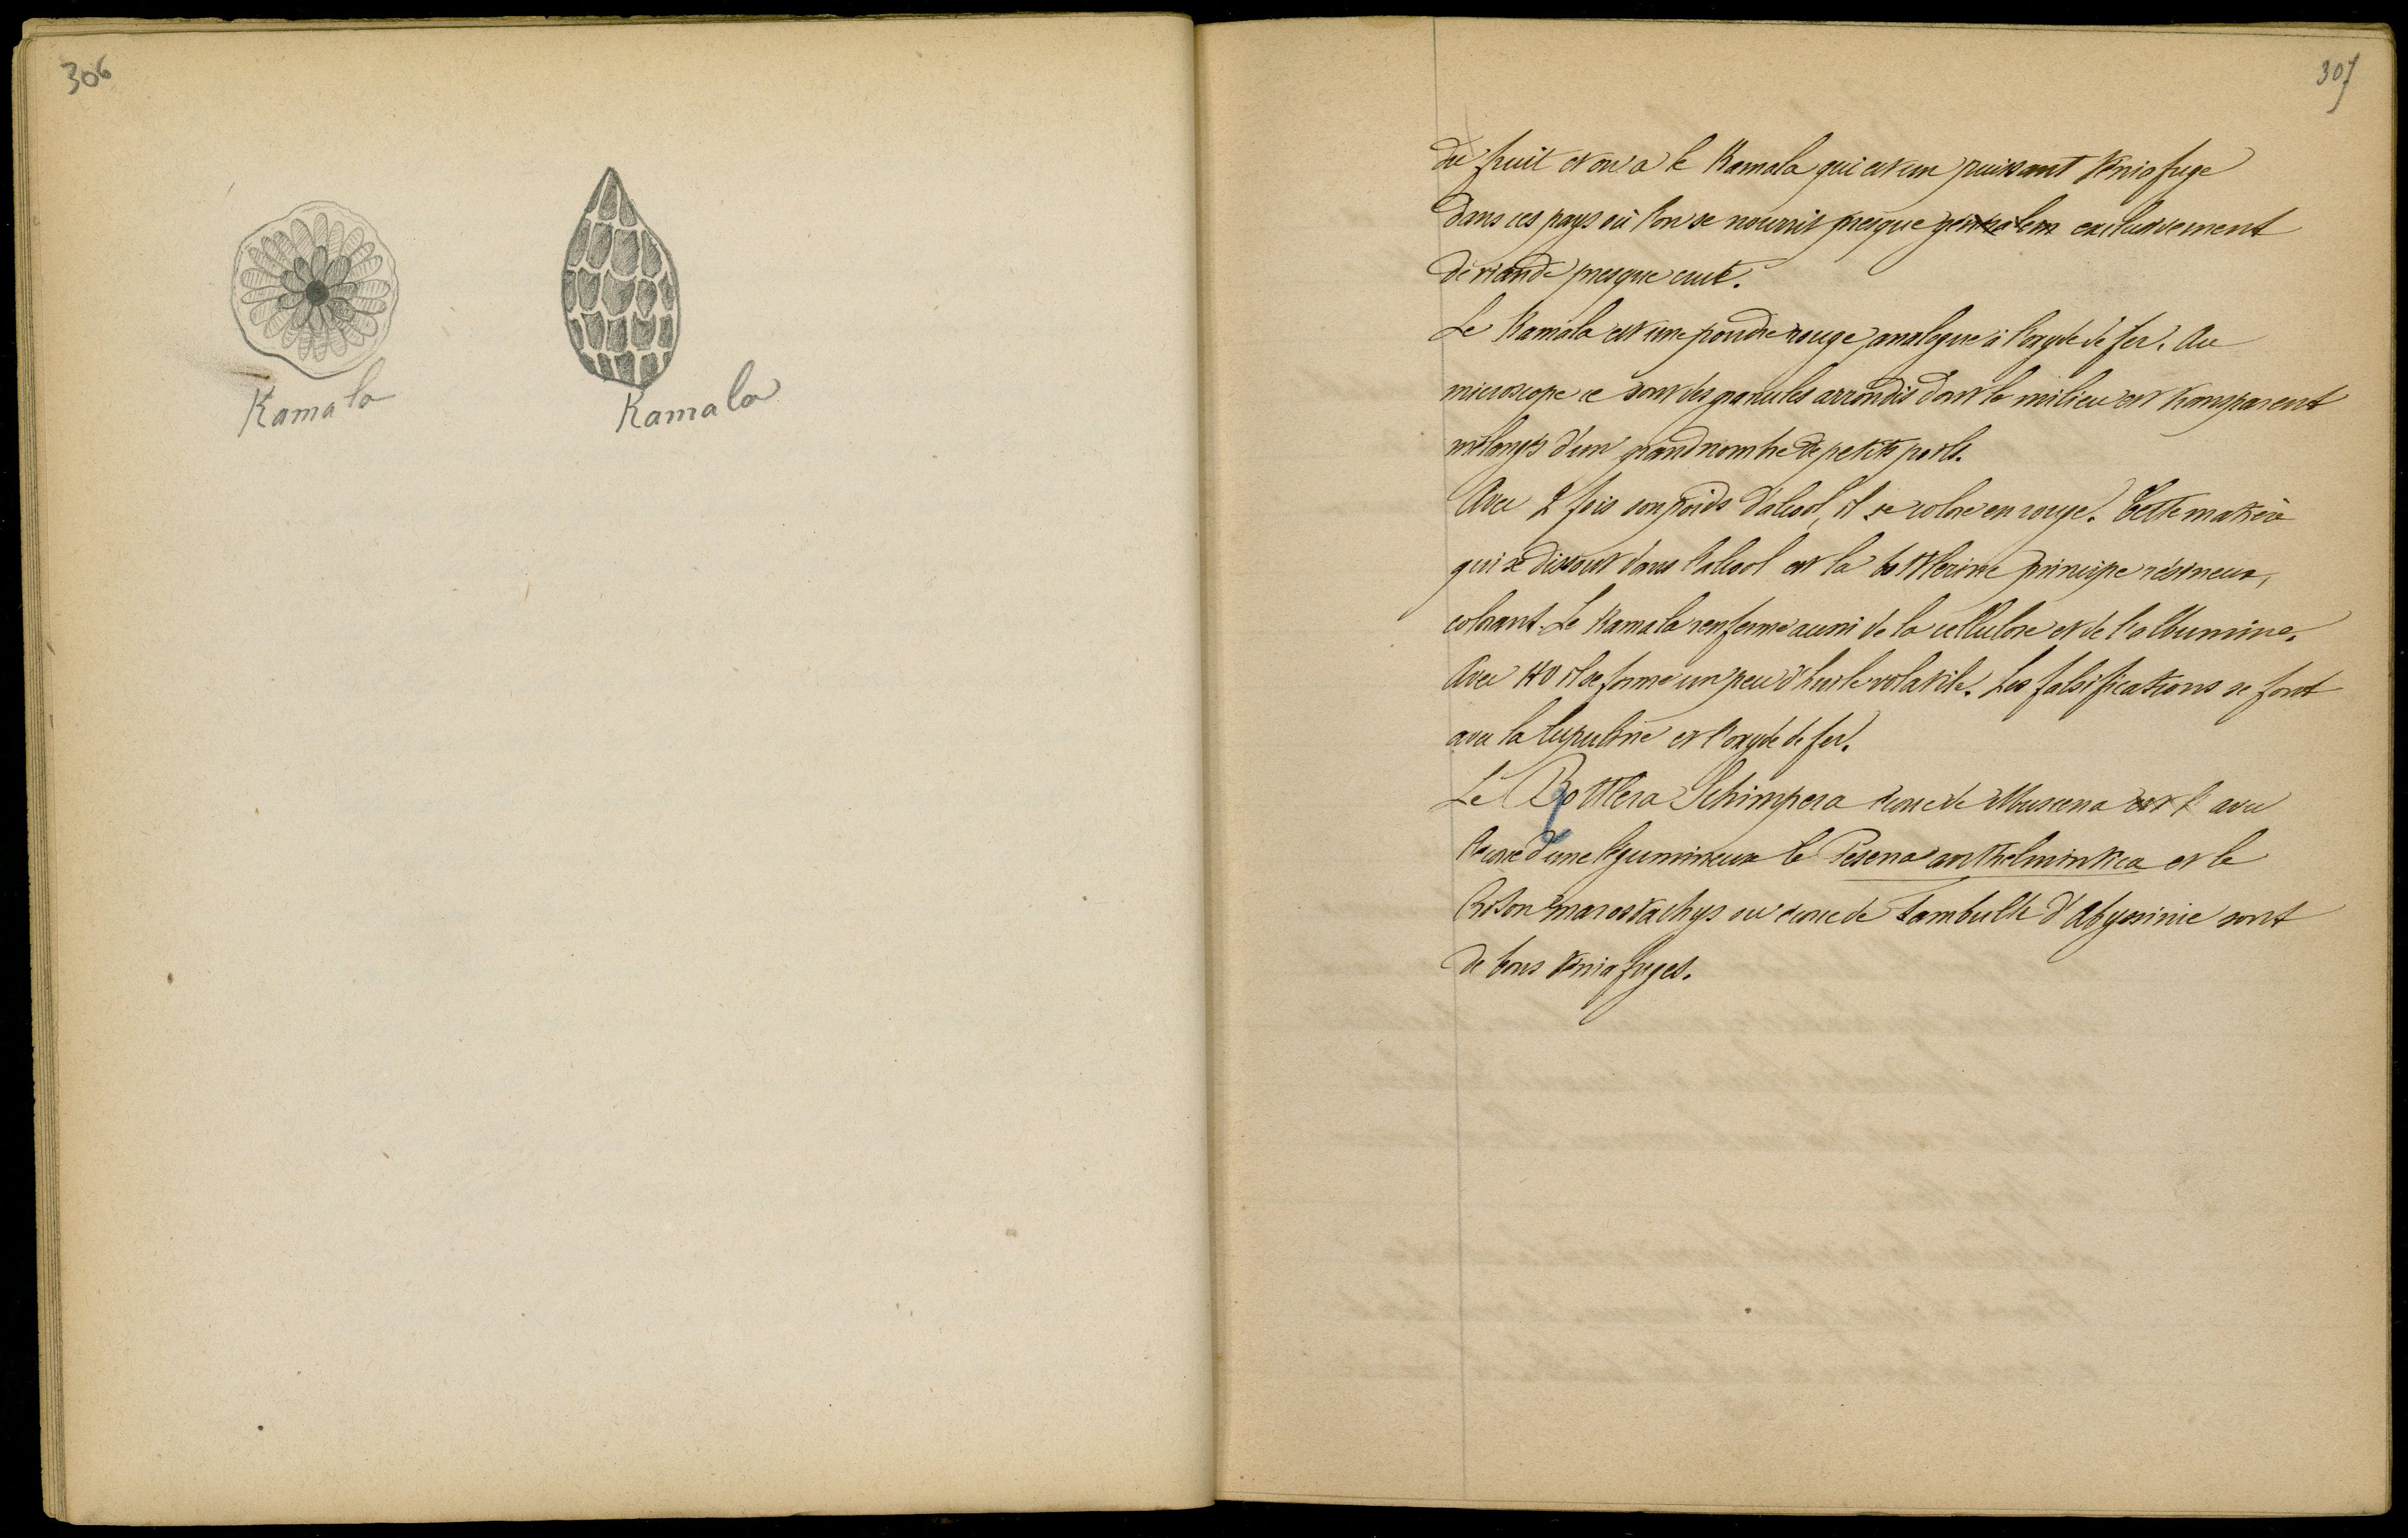 306
Kamala
Kamala
307
du fruit et on a le Kamala qui est un puissant téniafuge
dans ces pays où l'on se nourrit presque généralem exclusivement
de viande presque crue.
Le Kamala est une poudre rouge analogue à l'oxyde de fer. Au
microscope ce sont des granules arrondis dont le milieu est transparent
mélangés d'un grand nombre de petits poils.
Avec 2 fois son poids d'alcool, il se colore en rouge. Cette matière
qui se dissout dans l'alcool est la rottlerine principe résineux,
colorant. Le Kamala renferme aussi de la cellulose et de l'albumine.
Avec HO il se forme un peu d'huile volatile. Les falsifications se font
avec la lupuline et l'oxyde de fer.
Le Rottlera Schimpera écorce de Musena est avec
l'écorce d'une légumineuse le Besena anthelmintica et le
Croton macrostachys ou écorce de Tambulk d'Abyssinie sont
de bons téniafuges.